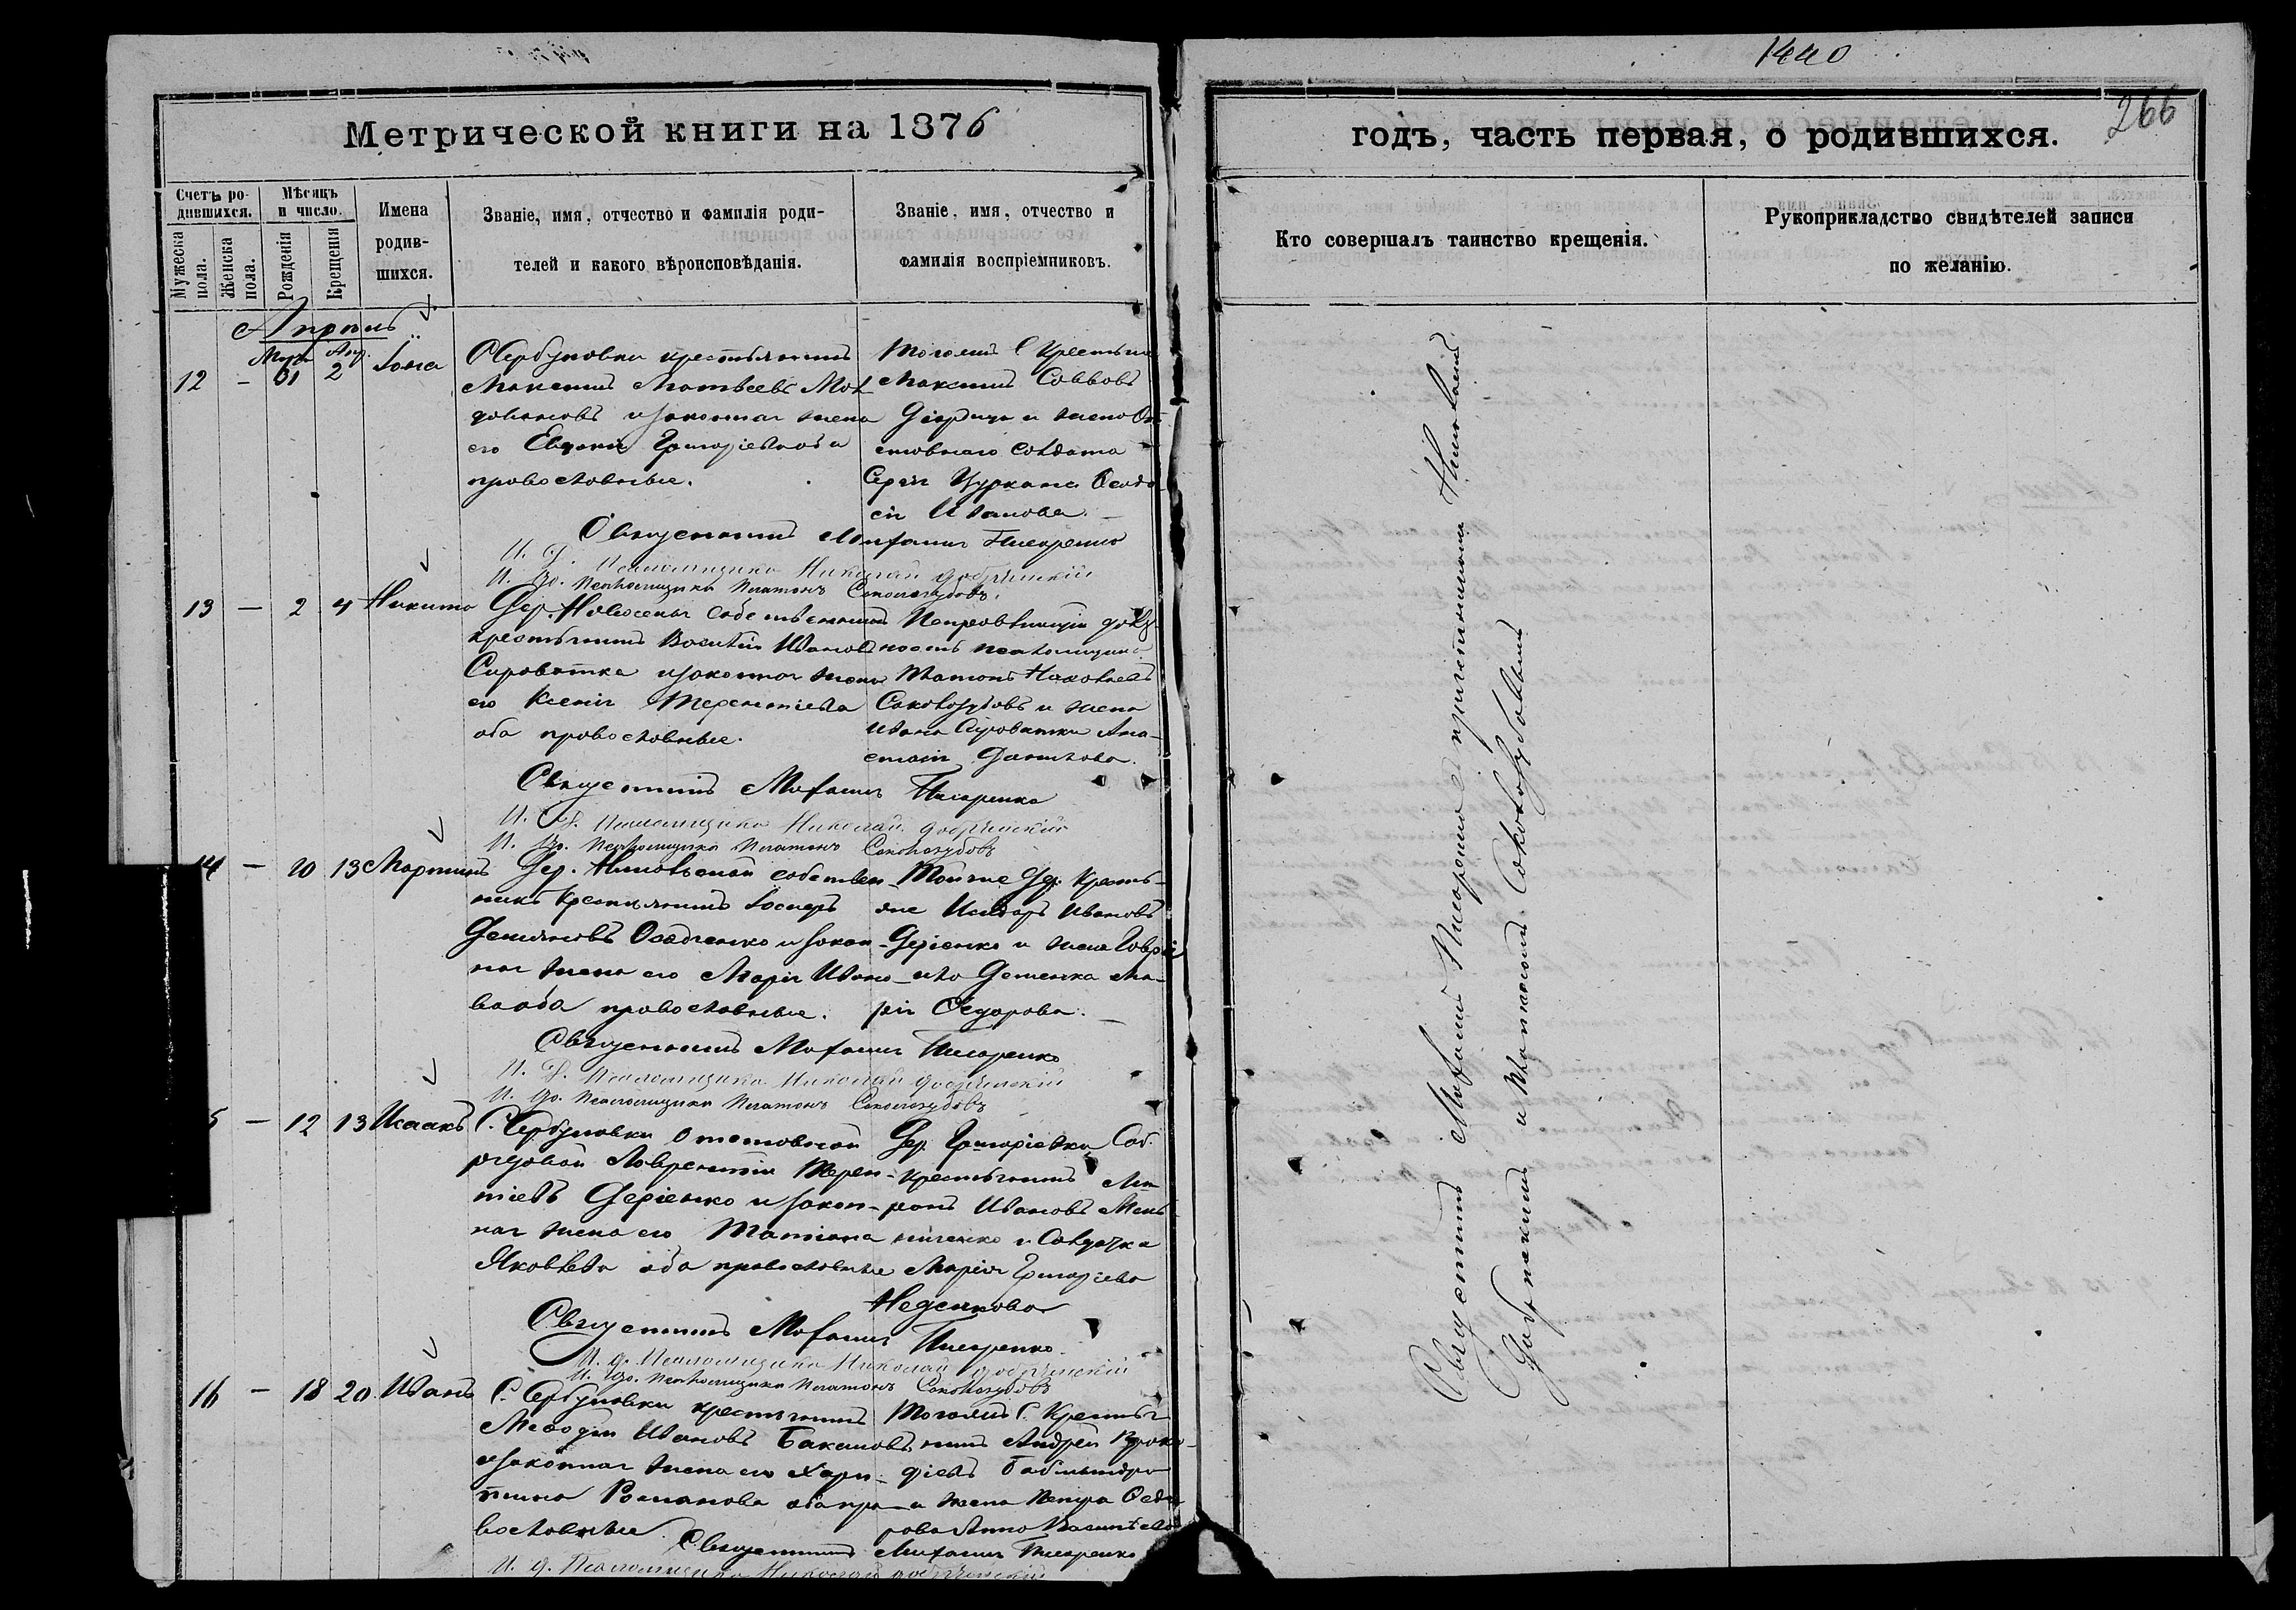 1440
266
Метрической книги на 1876
годъ, часть первая, о родившихся.
Счетъ родившихся.
Мужеска пола.
Женска пола.
Мѣсяцъ и число.
Рожденія
Крещенія
Имена родившихся.
Званіе, имя, отчество и фамилія родителей и какого вѣроисповѣданія.
Званіе, имя, отчество и фамилія воспріемниковъ.
Кто совершалъ таинство крещенія.
Рукоприкладство свидѣтелей записи по желанію.
Апрѣль
12 – 31 2 Іона
С Сербуловки крестьянинъ
Максимъ Матвѣевъ Мол
довановъ и законная жена
его Евдокія Григорьева оба
православные.
Тогоже С крестьяне
Максимъ Саввовъ
и жена От
ставнаго солдата
Сергія Цуркана Феодо
сія Иванова.
Священникъ Михаилъ Писаренко
И. д. Псаломщика Николай Добрянскій
И. до. Псаломщика Платонъ Соколозубовъ.
13 – 2 4 Никита
Дер. Новоселья собственникъ
крестьянинъ Василій Ивановъ
Сыроватка и законная жена
его Ксенія Терентіева
оба православные.
Исправляющій долж
ность псаломщика
Платонъ Яковлевъ
Соколозубовъ и жена
Ивана Сыроватки Ана-
стасія Данилова.
Священникъ Михаилъ Писаренко
И. д. Псаломщика Николай Добрянскій
И. до. Псаломщика Платонъ Соколозубовъ
14 – 10 13 Мартинъ
Дер. собствен-
никъ крестьянинъ Іосифъ
Демяновъ Осадченко и закон-
ная жена его Марія Ивано-
ва оба православные.
Тойже Дер. крестья-
не Исидоръ Ивановъ
Деріенко и жена Гаврі
ила Деменка Ма-
рія Ѳедорова.
Священникъ Михаилъ Писаренко
И. д. Псаломщика Николай Добрянскій
И. до. Псаломщика Платонъ Соколозубовъ
5 – 12 13 Исаакъ
С. Сербуловки Отставной
рядовой Лаврентій Терен-
тіевъ Деріенко и закон-
ная жена его Татіана
Яковлева оба православные
Дер. Григорьевки Соб.
крестьянинъ Мит
ронъ Ивановъ
и Солдатка
Марія Григорьева
Священникъ Михаилъ Писаренко
И. д. Псаломщика Николай Добрянскій
И. до. Псаломщика Платонъ Соколозубовъ
16 – 18 20 Иванъ
С. Сербуловки крестьянинъ
Меѳодій Ивановъ Бакановъ
и законная жена его Хари-
тина Романова оба пра-
вославные.
Тогоже С. крестья
нинъ Андрей Проко-
фіевъ
и жена Петра Ѳедо
рова Анна Васильева
Священникъ Михаилъ Писаренко
И. д. Псаломщика Николай Добрянскій
Священникъ Михаилъ Писаренко съ причетниками Николаемъ
Добрянскимъ и Платономъ Соколозубовымъ